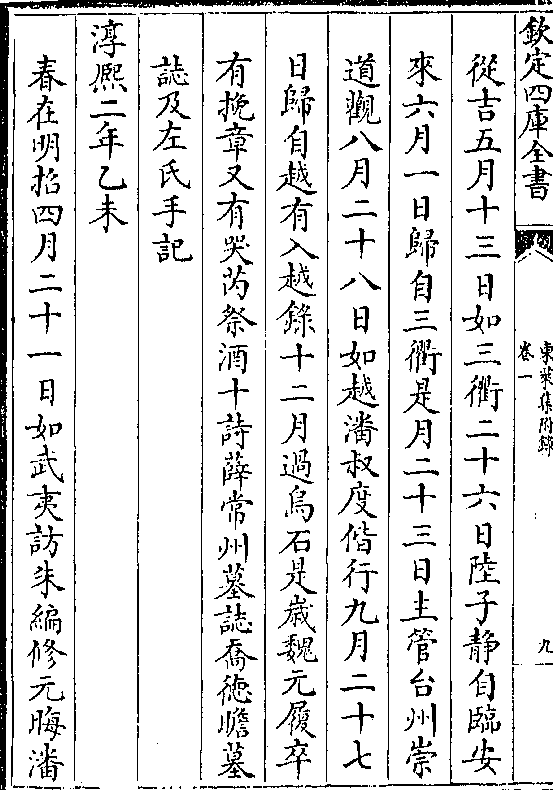 欽定四庫全書
東萊集附錄
卷一
九
從吉五月十三日如三衢二十六日陸子靜自臨安
來六月一日歸自三衢是月二十三日主管台州崇
道觀八月二十八日如越潘叔度偕行九月二十七
日歸自越有入越錄十二月過烏石是歲魏元履卒
有挽章又有哭芮祭酒十詩薛常州墓誌喬徳瞻墓
誌及左氏手記
淳熈二年乙未
春在明招四月二十一日如武夷訪朱編修元晦潘